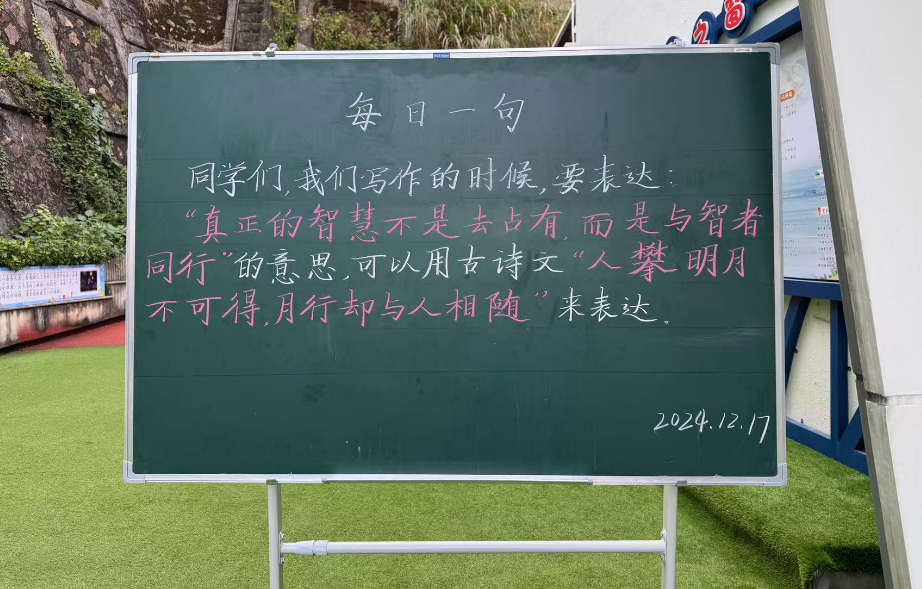 每日一句
同学们,我们写作的时候,要表达:
“真正的智慧不是去占有,而是与智者
同行”的意思,可以用古诗文“人攀明月
不可得,月行却与人相随”来表达。
2024.12.17